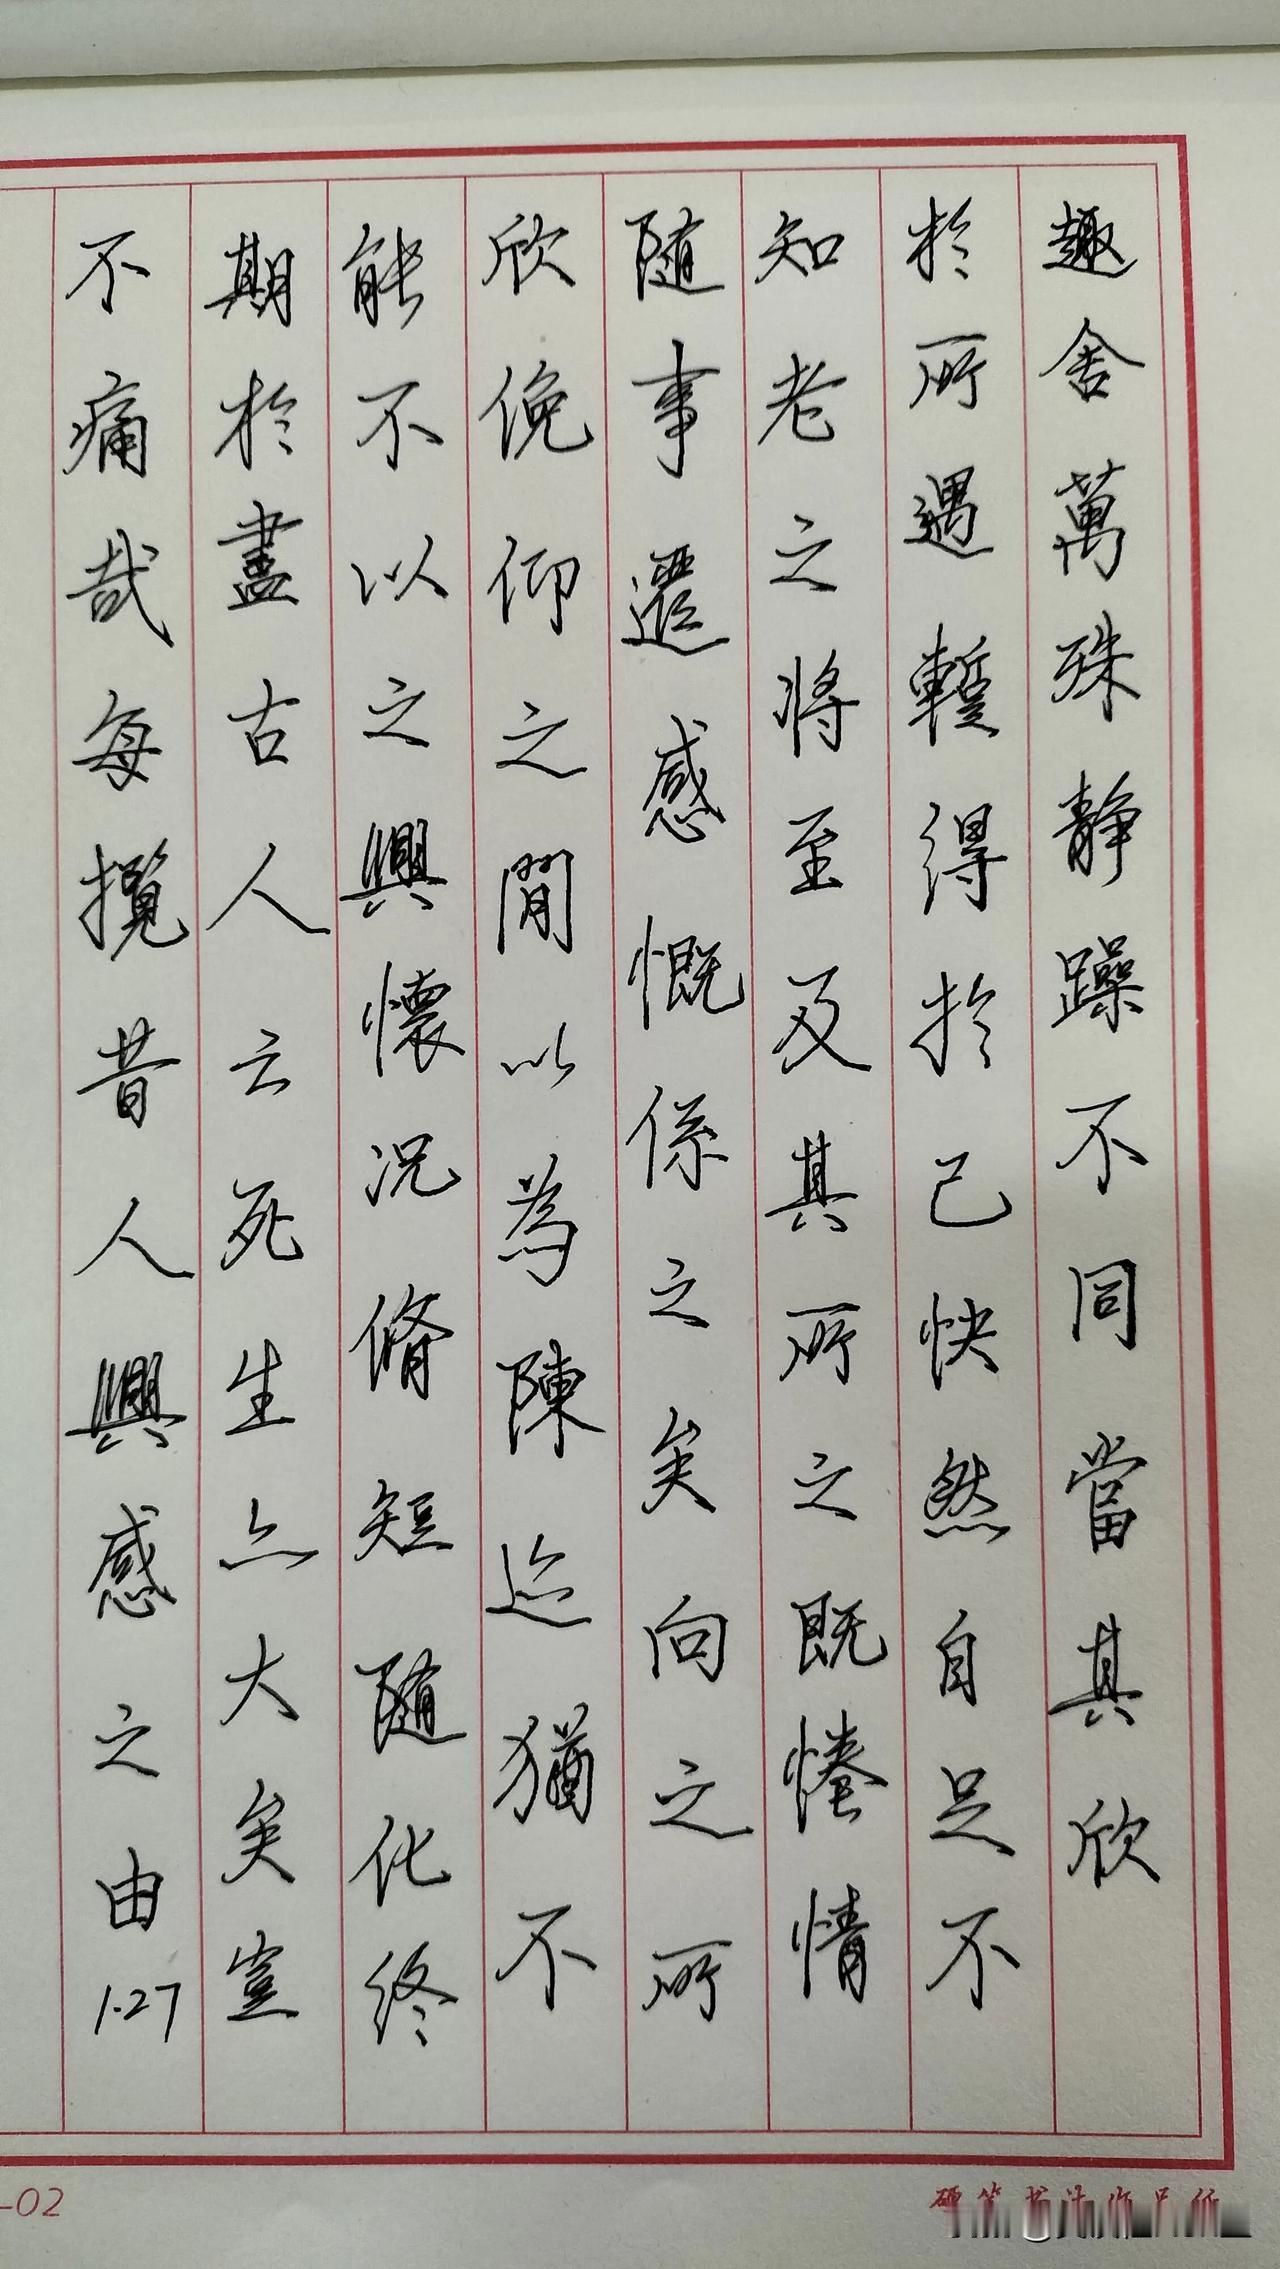 趣舍萬殊静躁不同當其欣
於所遇蹔得於己快然自足不
知老之将至及其所之既惓情
随事遷感慨係之矣向之所
欣俛仰之閒以為陳迹猶不
能不以之興懷况脩短随化終
期於盡古人云死生亦大矣豈
不痛哉每攬昔人興感之由
1.27
-02
硬笔书法作品纸